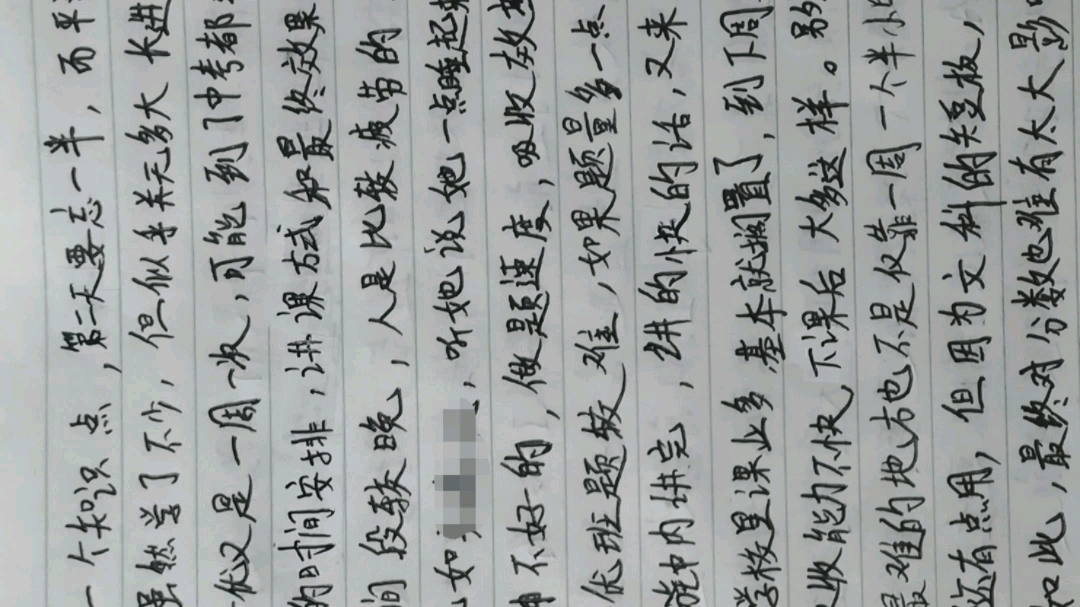 一个知识点，第二天要忘一半，而平
虽然学了不少，但似乎并无多大长进
优又是一周一次，可能到了中考都
的时间安排，讲课方式和最终效果
间段较晚，人是比较疲劳的
如，听她说她一点睡起来
不好的，做题速度，吸收效
优班题较难，如果题量多一点
施中内讲完，讲的快的话，又来
学校里课业多基本就搁置了，到下周
收能力不快，下课后大多这样。影
最难的地方也不是仅靠一周一个半小
还有点用，但因为文科的短板，
如此，最终对分数也难有太大影